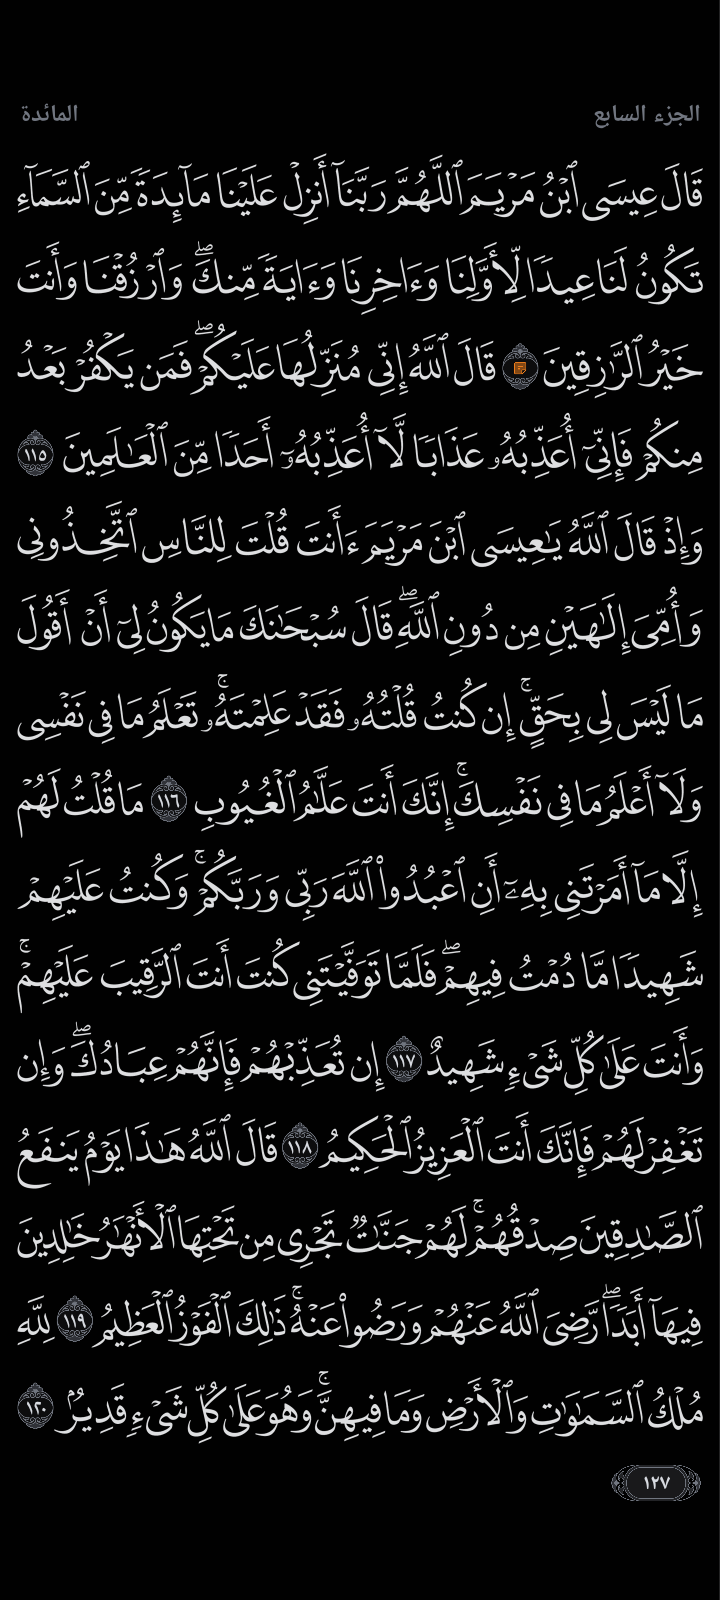 الجزء السابع
المائدة
قَالَ عِيسَى ٱبْنُ مَرْيَمَ ٱللَّهُمَّ رَبَّنَآ أَنزِلْ عَلَيْنَا مَآئِدَةً مِّنَ ٱلسَّمَآءِ
تَكُونُ لَنَا عِيدًا لِّأَوَّلِنَا وَءَاخِرِنَا وَءَايَةً مِّنكَۖ وَٱرْزُقْنَا وَأَنتَ
خَيْرُ ٱلرَّٰزِقِينَ قَالَ ٱللَّهُ إِنِّى مُنَزِّلُهَا عَلَيْكُمْۖ فَمَن يَكْفُرْ بَعْدُ
مِنكُمْ فَإِنِّىٓ أُعَذِّبُهُۥ عَذَابًا لَّآ أُعَذِّبُهُۥٓ أَحَدًا مِّنَ ٱلْعَٰلَمِينَ ١١٥
وَإِذْ قَالَ ٱللَّهُ يَٰعِيسَى ٱبْنَ مَرْيَمَ ءَأَنتَ قُلْتَ لِلنَّاسِ ٱتَّخِذُونِى
وَأُمِّىَ إِلَٰهَيْنِ مِن دُونِ ٱللَّهِۖ قَالَ سُبْحَٰنَكَ مَا يَكُونُ لِىٓ أَنْ أَقُولَ
مَا لَيْسَ لِى بِحَقٍّۚ إِن كُنتُ قُلْتُهُۥ فَقَدْ عَلِمْتَهُۥۚ تَعْلَمُ مَا فِى نَفْسِى
وَلَآ أَعْلَمُ مَا فِى نَفْسِكَۚ إِنَّكَ أَنتَ عَلَّٰمُ ٱلْغُيُوبِ ١١٦ مَا قُلْتُ لَهُمْ
إِلَّا مَآ أَمَرْتَنِى بِهِۦٓ أَنِ ٱعْبُدُوا۟ ٱللَّهَ رَبِّى وَرَبَّكُمْۚ وَكُنتُ عَلَيْهِمْ
شَهِيدًا مَّا دُمْتُ فِيهِمْۖ فَلَمَّا تَوَفَّيْتَنِى كُنتَ أَنتَ ٱلرَّقِيبَ عَلَيْهِمْۚ
وَأَنتَ عَلَىٰ كُلِّ شَىْءٍ شَهِيدٌ ١١٧ إِن تُعَذِّبْهُمْ فَإِنَّهُمْ عِبَادُكَۖ وَإِن
تَغْفِرْ لَهُمْ فَإِنَّكَ أَنتَ ٱلْعَزِيزُ ٱلْحَكِيمُ ١١٨ قَالَ ٱللَّهُ هَٰذَا يَوْمُ يَنفَعُ
ٱلصَّٰدِقِينَ صِدْقُهُمْۚ لَهُمْ جَنَّٰتٌ تَجْرِى مِن تَحْتِهَا ٱلْأَنْهَٰرُ خَٰلِدِينَ
فِيهَآ أَبَدًاۖ رَّضِىَ ٱللَّهُ عَنْهُمْ وَرَضُوا۟ عَنْهُۚ ذَٰلِكَ ٱلْفَوْزُ ٱلْعَظِيمُ ١١٩ لِلَّهِ
مُلْكُ ٱلسَّمَٰوَٰتِ وَٱلْأَرْضِ وَمَا فِيهِنَّۚ وَهُوَ عَلَىٰ كُلِّ شَىْءٍ قَدِيرٌۢ ١٢٠
١٢٧